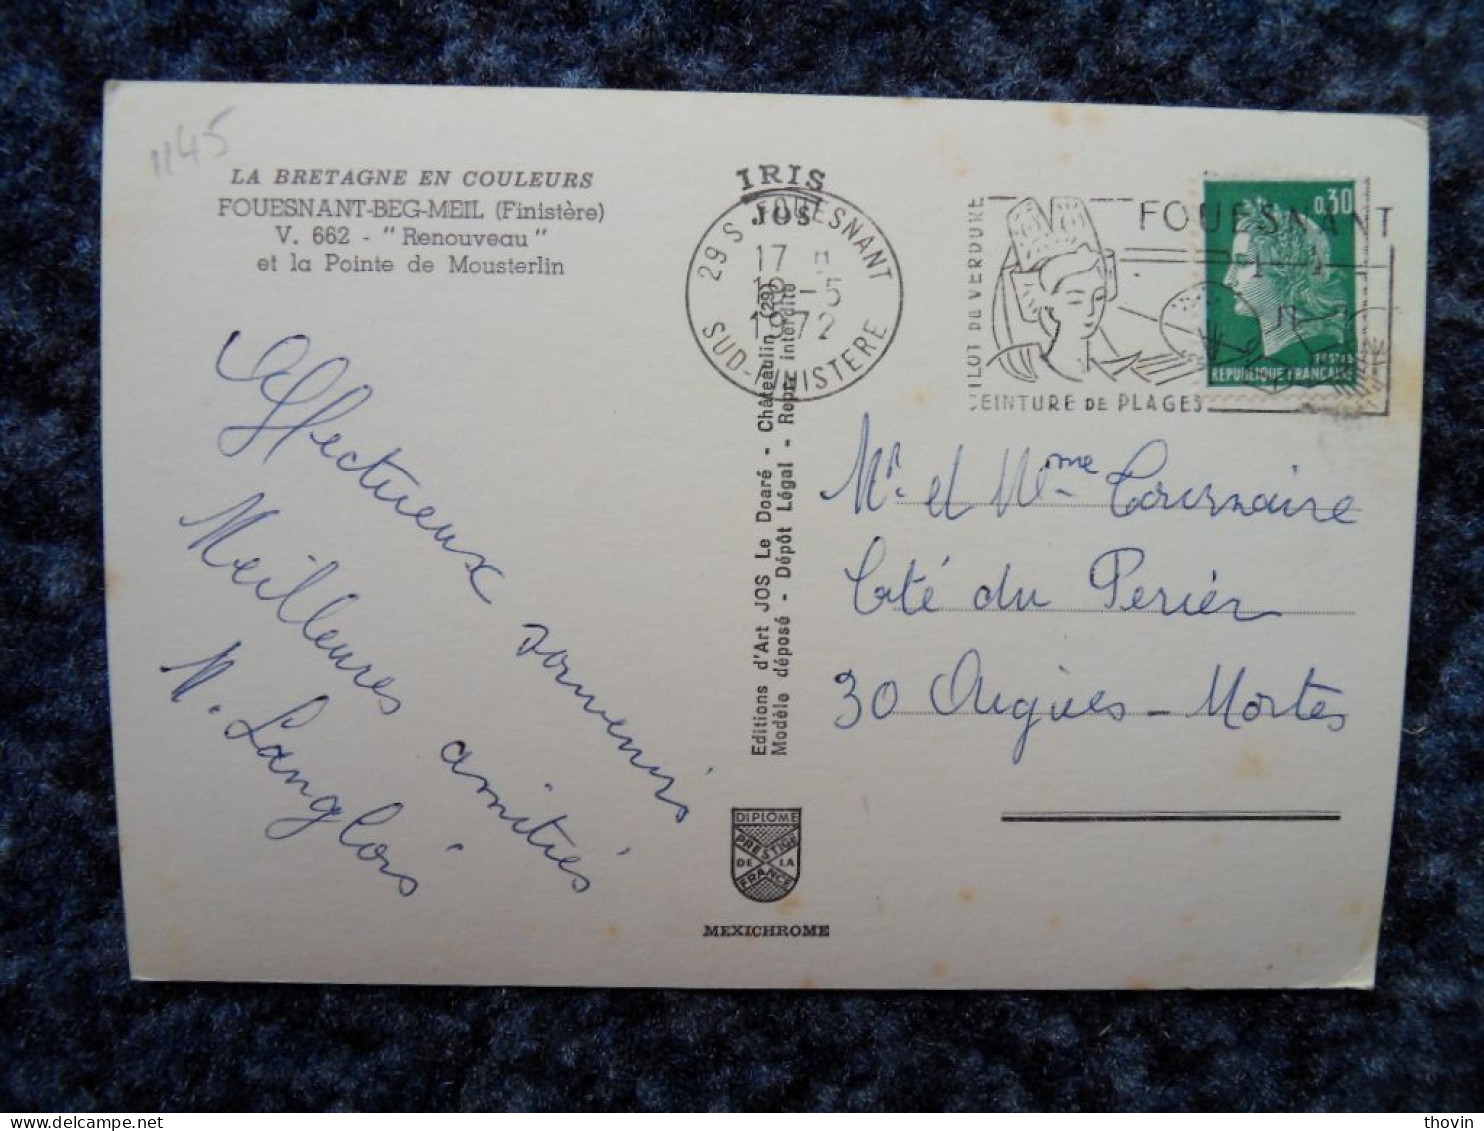 1145
LA BRETAGNE EN COULEURS
FOUESNANT-BEG-MEIL (Finistère)
V. 662 - "Renouveau"
et la Pointe de Mousterlin
Affectueux souvenirs
Meilleures amitiés
N. Langlois
IRIS
JOS
29 S FOUESNANT
17 H
18-5
1972
SUD-FINISTERE
Editions d'Art JOS Le Doaré - Châteaulin (29)
Modèle déposé - Dépôt Légal - Repr. interdite
DIPLOME
PRESTIGE
DE LA
FRANCE
MEXICHROME
FOUESNANT
ILOT DE VERDURE
CEINTURE DE PLAGES
0,30
POSTES
REPUBLIQUE FRANÇAISE
Mr. et Mme Tournaire
Cité du Perier
30 Aigues-Mortes
thovin